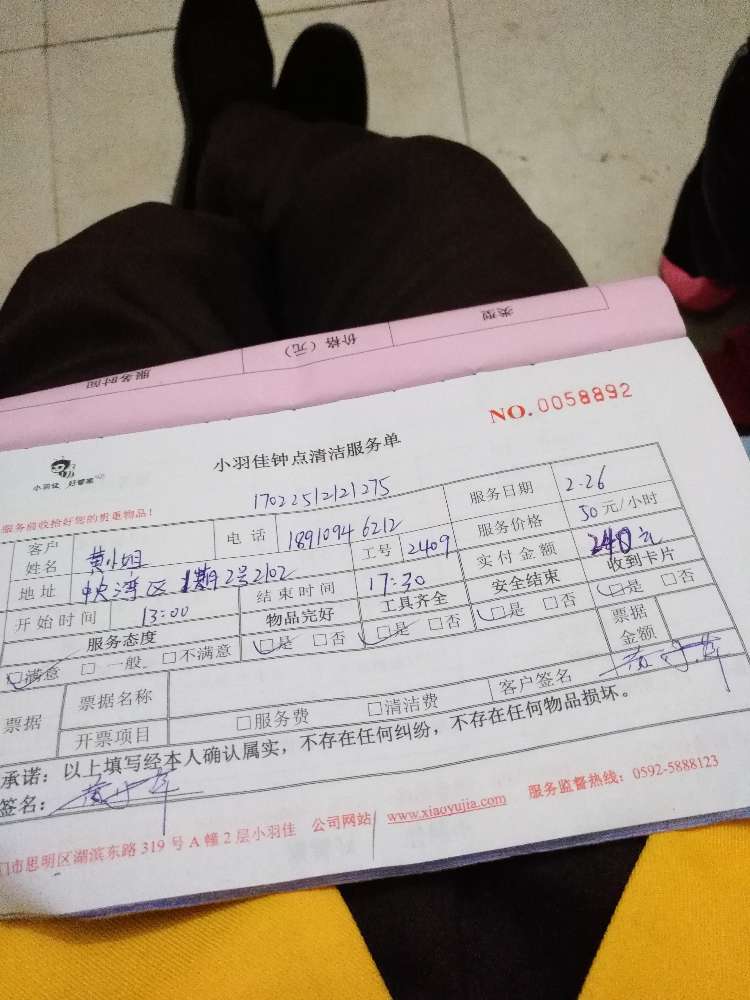 类型
价格（元）
服务时间
NO. 0058892
小羽佳 好管家
小羽佳钟点清洁服务单
服务前收拾好您的贵重物品！
17022512121275
客户姓名 黄小姐 电话 18910946212 服务日期 2.26
地址 中央湾区1期2号2102 工号 2409 服务价格 50元/小时
开始时间 13:00 结束时间 17:30 实付金额 240元
服务态度 物品完好 工具齐全 安全结束 收到卡片
☑满意 □一般 □不满意 ☑是 □否 ☑是 □否 ☑是 □否 ☑是 □否
票据 票据名称 票据金额
开票项目 □服务费 □清洁费 客户签名
承诺：以上填写经本人确认属实，不存在任何纠纷，不存在任何物品损坏。
签名：
门市思明区湖滨东路319号A幢2层小羽佳 公司网站 www.xiaoyujia.com 服务监督热线：0592-5888123